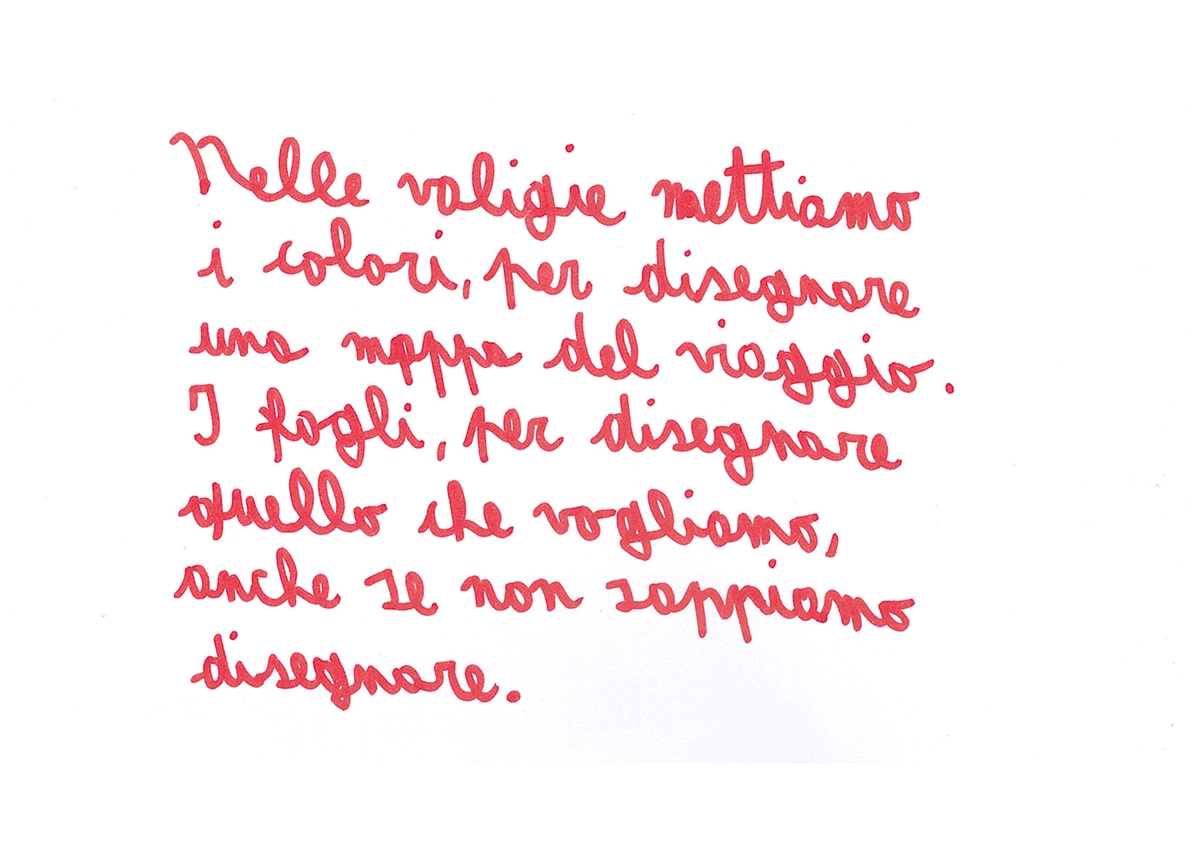 Nelle valigie mettiamo
i colori, per disegnare
una mappa del viaggio.
I fogli, per disegnare
quello che vogliamo,
anche se non sappiamo
disegnare.